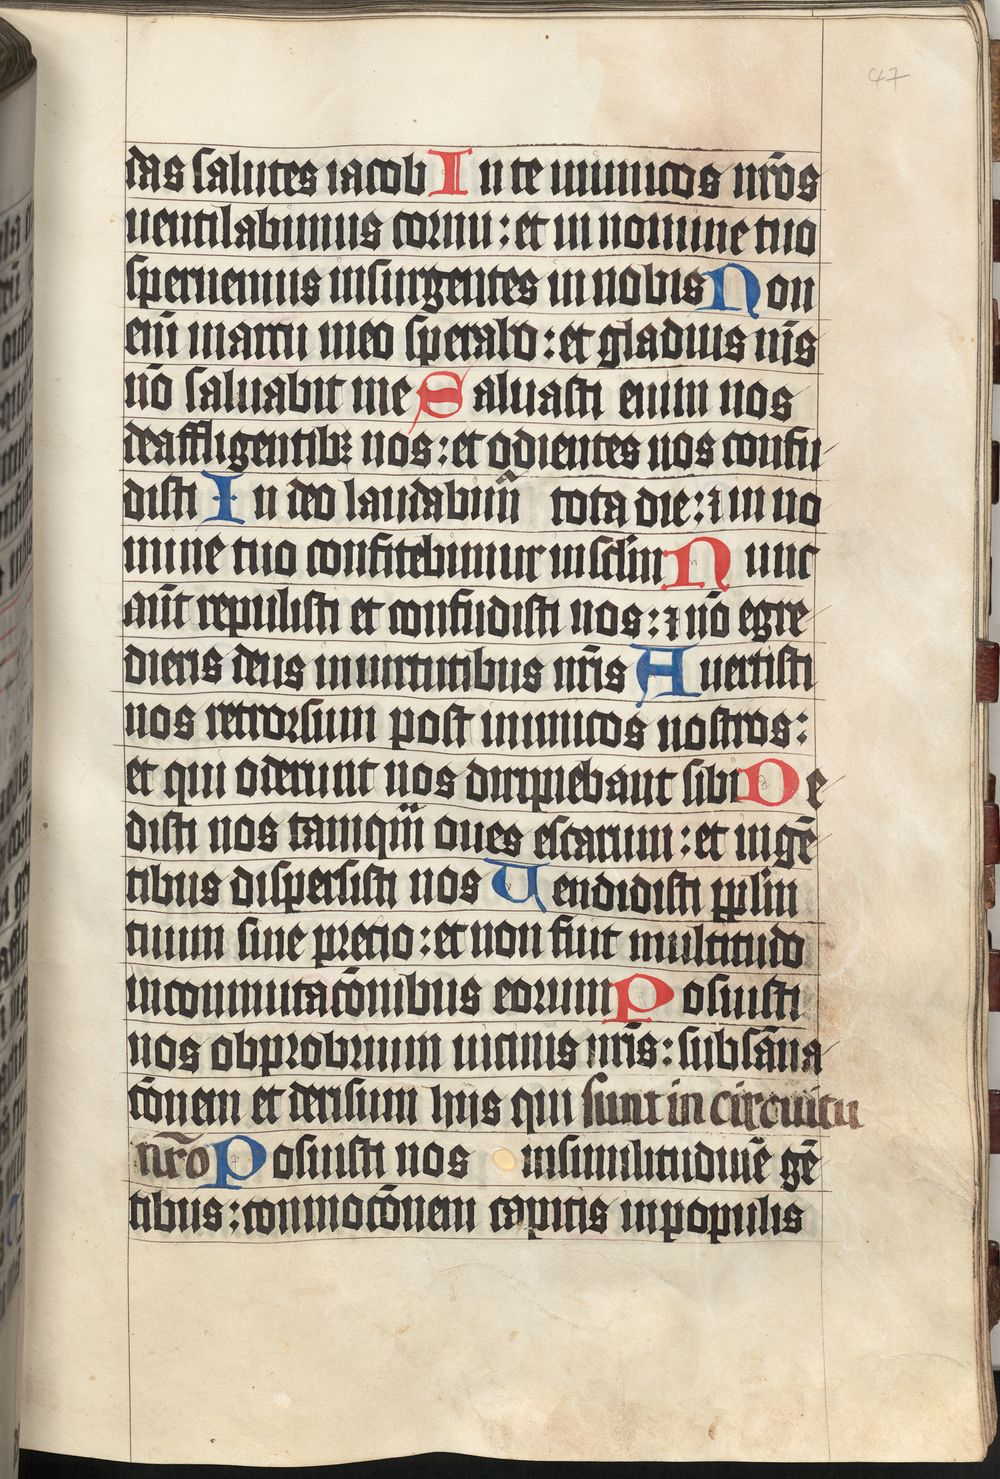 47
das salutes iacob In te inimicos nr̄os
uentilabimus cornu : et in nomine tuo
spernemus insurgentes in nobis Non
em̄ in arcu meo sperabo : et gladius m̄s
nō saluabit me Saluasti enim nos
deaffligentibꝫ nos : et odientes nos confu
disti In deo laudabim̄ tota die : ⁊ in no
mine tuo confitebimur in sc̄lm Nunc
aūt repulisti et confudisti nos : ⁊ nō egre
dieris deus in uirtutibus nr̄is Auertisti
nos retrorsum post inimicos nostros :
et qui oderunt nos diripiebant sibi De
disti nos tamqm̄ oues escarum : et in gē
tibus dispersisti nos Uendidisti pplm
tuum sine precio : et non fuit multitudo
in conmutac̄onibus eorum Posuisti
nos obprobrium uicinis nr̄is : subsāna
c̄onem et derisum hiis qui sunt in circuitu
nr̄o Posuisti nos in similitudinē gē
tibus : conmoc̄onem capitis in populis